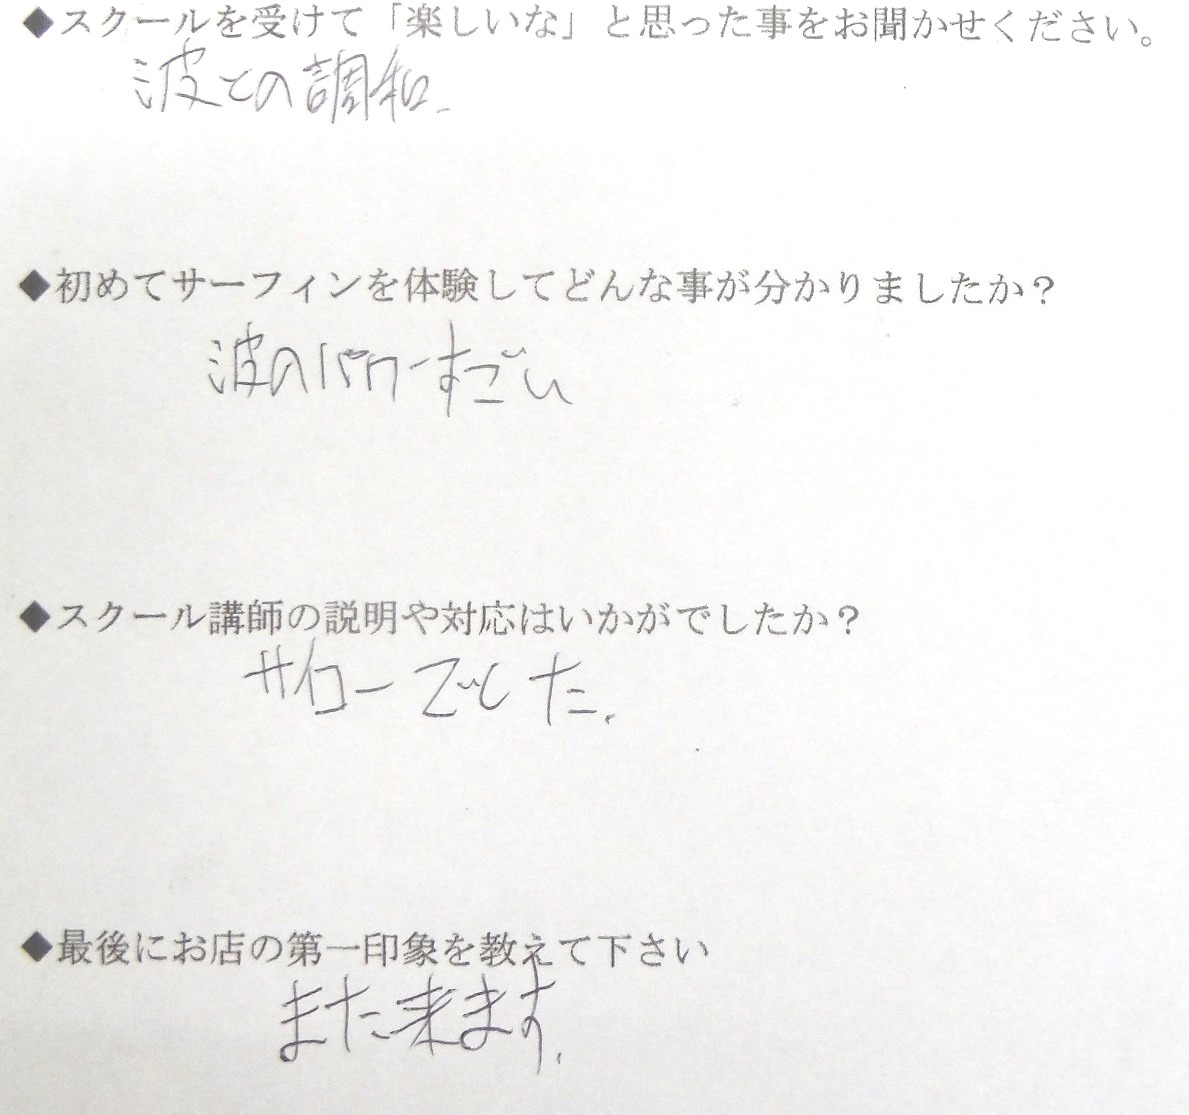 ◆スクールを受けて「楽しいな」と思った事をお聞かせください。
波との調和.
◆初めてサーフィンを体験してどんな事が分かりましたか？
波のパワーすごい
◆スクール講師の説明や対応はいかがでしたか？
サイコーでした.
◆最後にお店の第一印象を教えて下さい
また来ます.